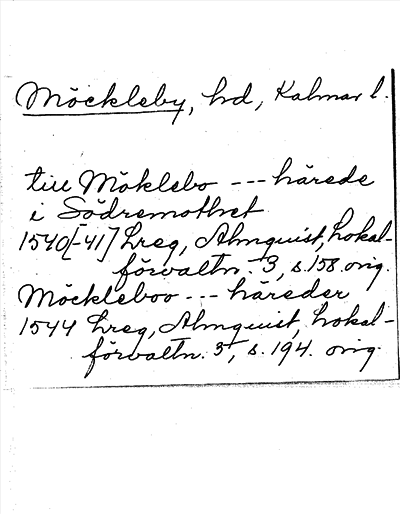 Möckleby, hd, Kalmar l.
till Möklebo --- härede
i Södremothet
1540[-41] Lreg, Almquist, Lokal-
förvaltn. 3, s. 158. orig.
Möckleboo --- häreder
1544 Lreg, Almquist Lokal-
förvaltn. 3, s. 194. orig.